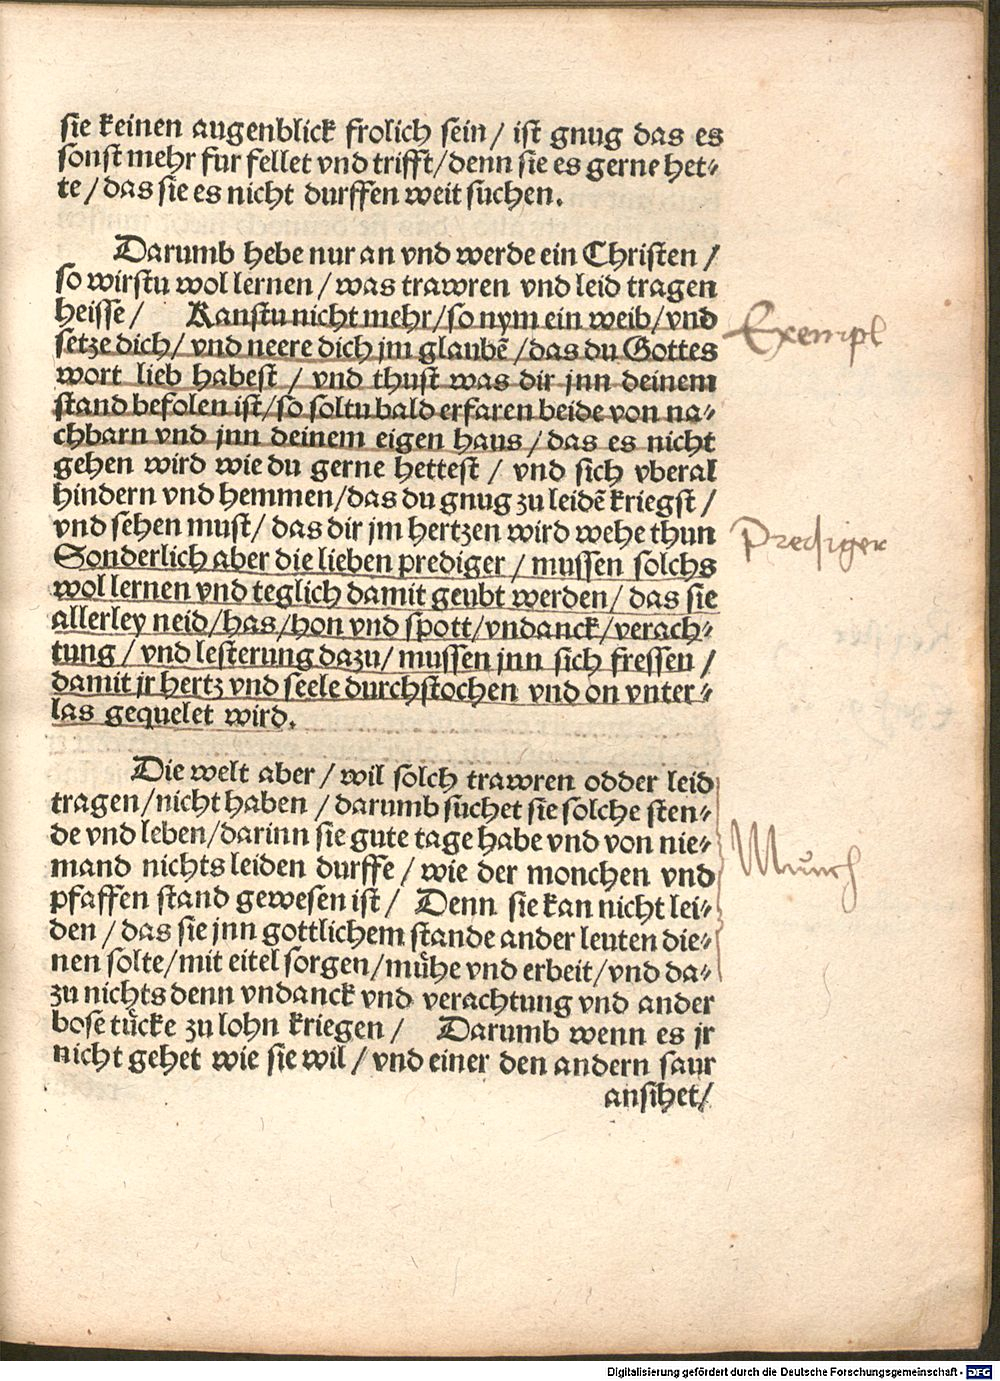 sie keinen augenblick frolich sein / ist gnug das es
sonst mehr fur fellet vnd trifft/denn sie es gerne het⸗
te / das sie es nicht durffen weit suchen.
Darumb hebe nur an vnd werde ein Christen /
so wirstu wol lernen / was trawren vnd leid tragen
heisse / Kanstu nicht mehr/so nym ein weib/vnd
setze dich/ vnd neere dich jm glaubē /das du Gottes
wort lieb habest / vnd thust was dir jnn deinem
stand befolen ist/so soltu bald erfaren beide von na⸗
chbarn vnd jnn deinem eigen haus /das es nicht
gehen wird wie du gerne hettest / vnd sich vberal
hindern vnd hemmen/das du gnug zu leidē kriegst /
vnd sehen must/ das dir jm hertzen wird wehe thun
Sonderlich aber die lieben prediger / mussen solchs
wol lernen vnd teglich damit geubt werden/ das sie
allerley neid/has/hon vnd spott/vndanck/verach⸗
tung / vnd lesterung dazu/ mussen jnn sich fressen /
damit jr hertz vnd seele durchstochen vnd on vnter⸗
las gequelet wird.
Die welt aber / wil solch trawren odder leid
tragen/nicht haben / darumb suchet sie solche sten⸗
de vnd leben/darinn sie gute tage habe vnd von nie⸗
mand nichts leiden durffe / wie der monchen vnd
pfaffen stand gewesen ist/ Denn sie kan nicht lei⸗
den / das sie jnn gottlichem stande ander leuten die⸗
nen solte/mit eitel sorgen/muͤhe vnd erbeit/vnd da⸗
zu nichts denn vndanck vnd verachtung vnd ander
bose tuͤcke zu lohn kriegen / Darumb wenn es jr
nicht gehet wie sie wil / vnd einer den andern saur
ansihet/
Exempl
Prediger
Münch
Digitalisierung gefördert durch die Deutsche Forschungsgemeinschaft - DFG